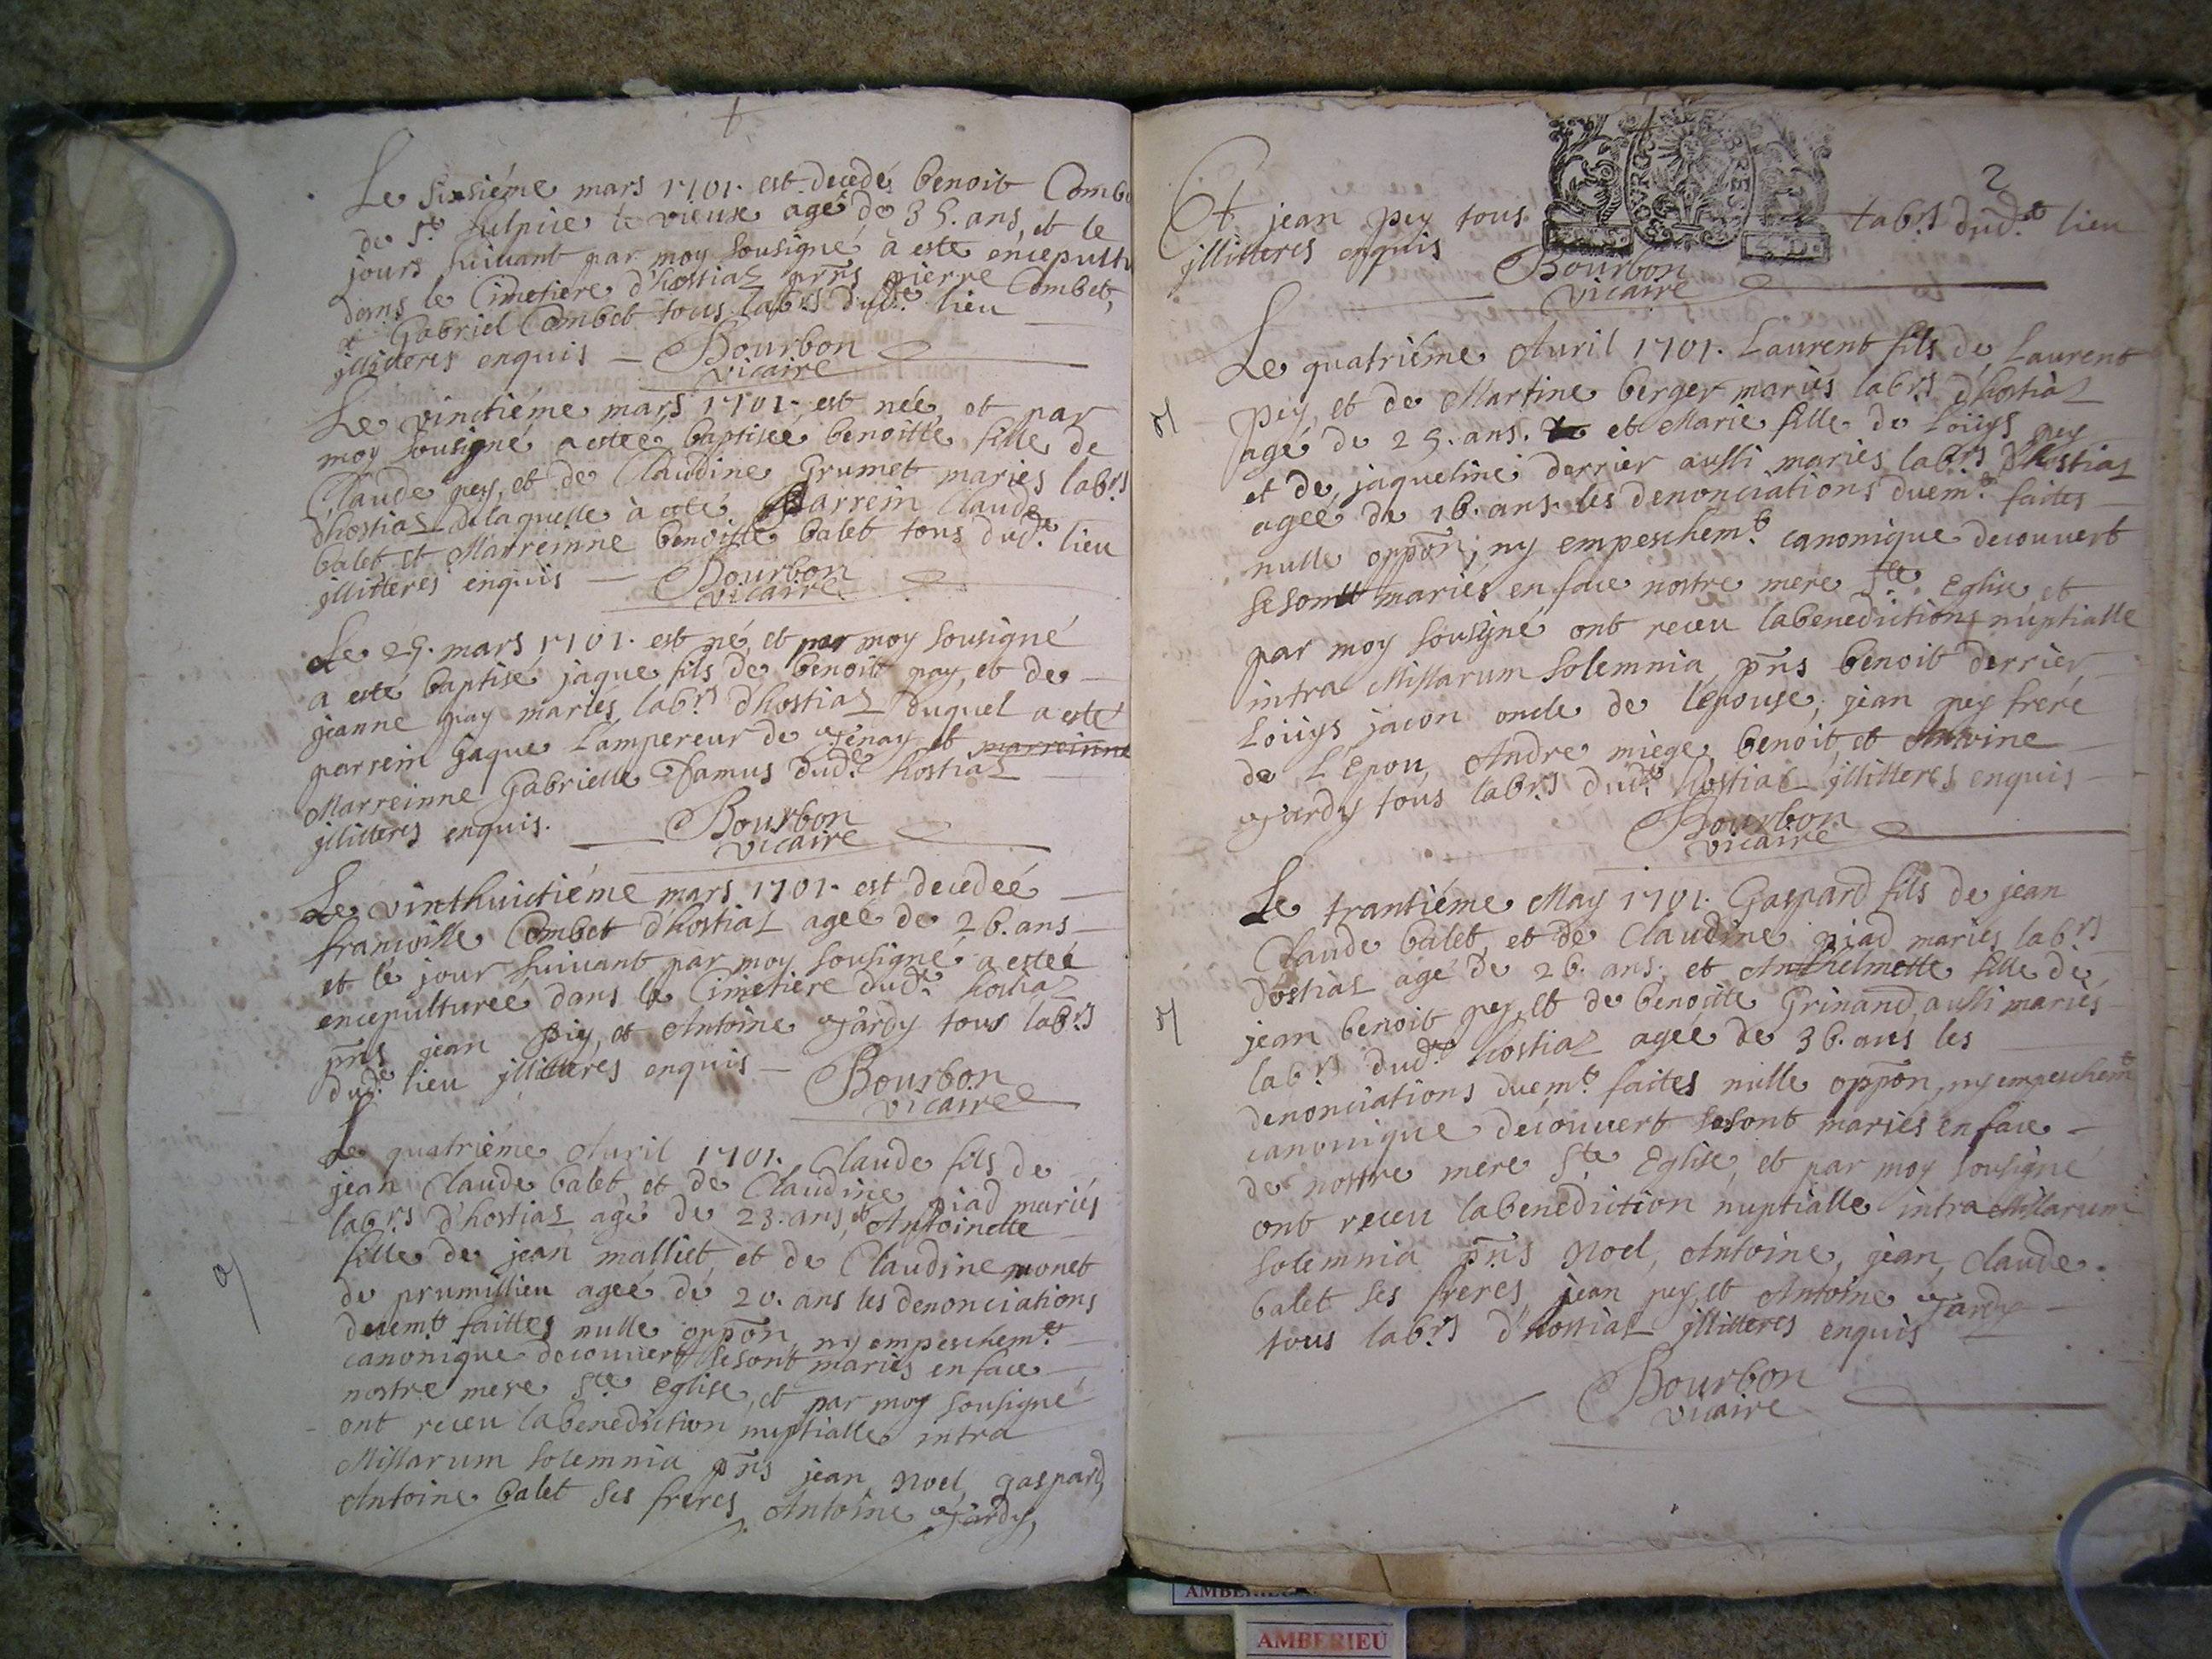 Le sixsiéme mars 1701. est decedé benoit Comb
de St. Sulpice le vieux agé de 35. ans, et le
jours suivant par moy sousigné a esté encepultu
dans le Cimetiere d'hostiaz pñts pierre Combet,
et Gabriel Combet tous labrs dudt. lieu
jlliteres enquis — Bourbon
vicaire
Le vinctiéme mars 1701. est neé, et par
moy sousigné a esteé baptiseé benoitte fille de
Claude pey, et de Claudine Grumet mariés labrs
dhostiaz delaquelle à esté parrein Claude
balet et Marreinne benoitte balet tous dudt. lieu
jllitteres enquis — Bourbon
vicaire
Le 25. mars 1701. est né, et par moy sousigné
a esté baptisé jaque fils de benoit pay, et de
jeanne pay mariés labrs d'hostiaz duquel a esté
parrein jaque Lampereur de et marreinne
Marreinne Gabrielle Famus dudt. hostiaz
jlliteres enquis. Bourbon
vicaire
Le vinthuictiéme mars 1701. est decedeé
francoise Combet d'hostiaz ageé de 26. ans
et le jour suivant par moy sousigné a esteé
encepultureé dans le Cimetiere dudt. hostiaz
pñts jean pey, et Antoine jardy tous labrs
dudt. lieu jllitteres enquis — Bourbon
vicaire
Le quatriéme Auril 1701. Claude fils de
jean Claude balet et de Claudine piad mariés
labrs d'hostiaz agé de 23. ans, et Antoinette
fille de jean malliet, et de Claudine monet
de prumillieu ageé de 20. ans les denonciations
duemt. faittes nulle oppõn ny empeschemt.
canonique decouvert se sont mariés en face
nostre mere Ste Eglise, et par moy sousigné
ont receu la benediction nuptialle intra
Missarum solemnia pñts jean, noel, gaspard,
Antoine balet ses freres, Antoine jardy,
2
Et jean pey tous labrs dudt. lieu
jllitteres enquis Bourbon
vicaire
Le quatriéme Auril 1701. Laurent fils de Laurent
pey, et de Martine berger mariés labrs d'hostiaz
agé de 25. ans. et Marie fille de Loüys pey
et de jaqueline derrier aussi mariés labrs d'hostiaz
ageé de 16. ans. les denonciations duemt. faites
nulle oppõn, ny empeschemt. canonique decouvert
se sont mariés en face nostre mere Ste. Eglise, et
par moy sousigné ont receu la benediction nuptialle
intra Missarum solemnia, pñts benoit derrier
Loüys jacon oncle de l'epouse, jean pey frere
de L'Epou, Andre miege, benoit, et Antoine
jardy tous labrs dudt. hostiaz jllitteres enquis
Bourbon
vicaire
Le trantiéme May 1701. Gaspard fils de jean
Claude balet, et de Claudine piad mariés labrs
dostiaz agé de 26. ans, et Anthelmette fille de
jean benoit pey, et de benoitte Grinand, aussi mariés
labrs dudt. hostiaz ageé de 36. ans les
denonciations duemt. faites nulle oppõn, ny empeschemt
canonique decouvert se sont mariés en face
de nostre mere Ste Eglise, et par moy sousigné
ont receu la benediction nuptialle intra Missarum
solemnia pñts Noel, Antoine, jean, Claude
balet ses freres, jean pey, et Antoine jardy
tous labrs d'hostiaz jllitteres enquis
Bourbon
vicaire
AMBERIEU